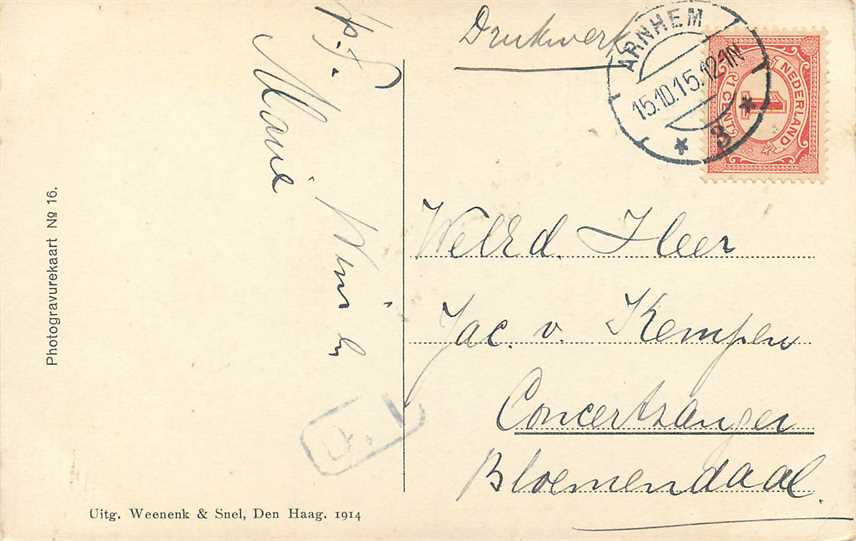 p.f.
Marie
Drukwerk
ARNHEM
15.10.15.12-1N
* 3 *
NEDERLAND
1
CENT
WelEd. Heer
Jac. v. Kempen
Concertzanger
Bloemendaal.
Photogravurekaart No 16.
Uitg. Weenenk & Snel, Den Haag. 1914